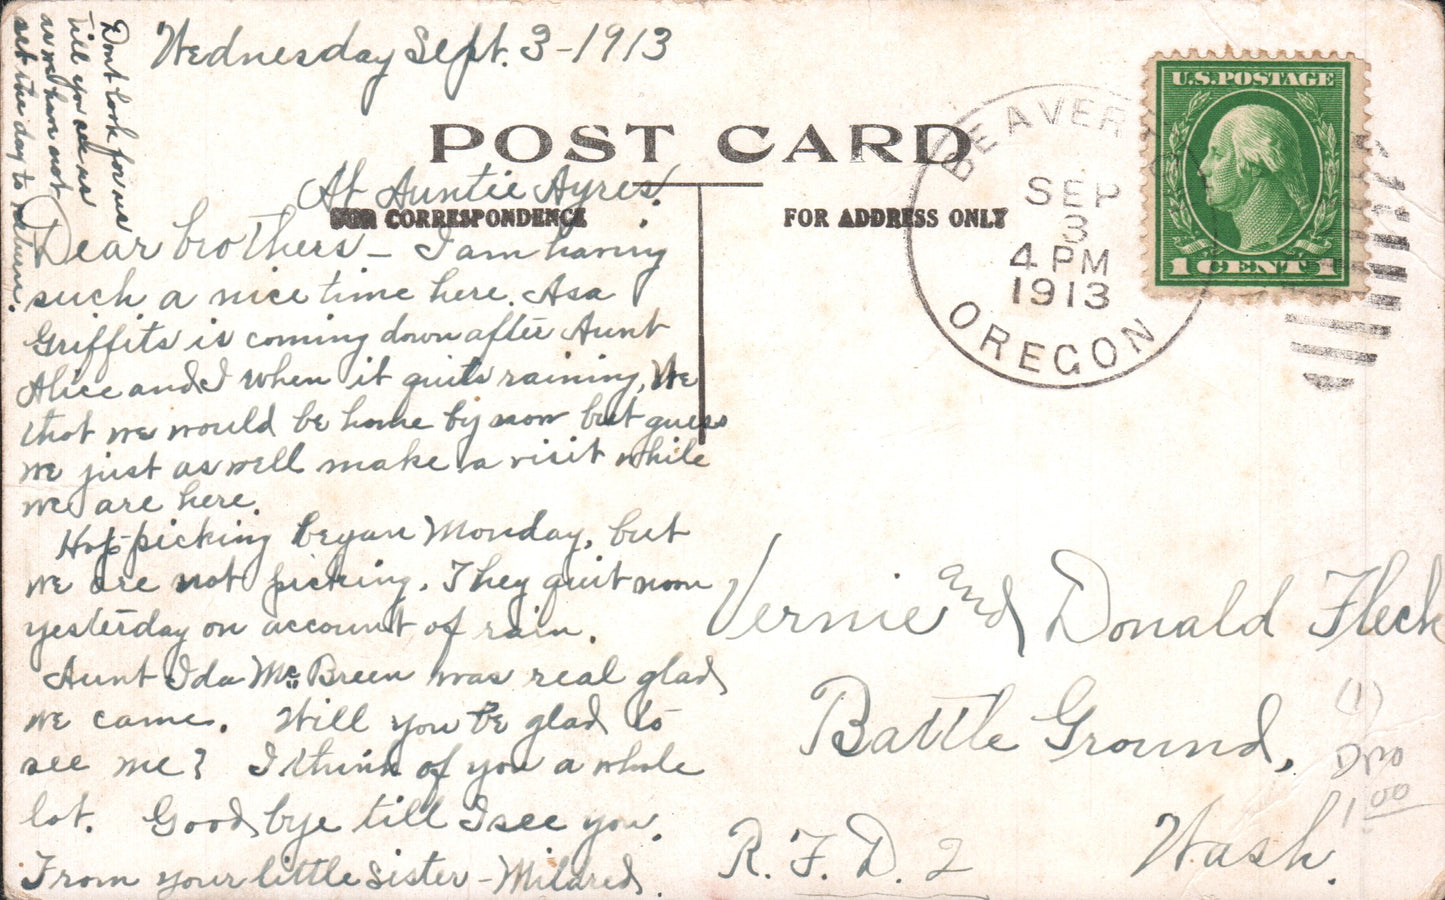 Wednesday Sept. 3-1913
Dont look for us
till you see us
as we have not
set the day to return.
POST CARD
At Auntie Ayres.
FOR CORRESPONDENCE
FOR ADDRESS ONLY
Dear brothers - I am having
such a nice time here. Asa
Griffits is coming down after Aunt
Alice and I when it quits raining, We
that we would be home by now but guess
we just as well make a visit while
we are here.
Hop-picking began Monday, but
we are not picking. They quit noon
yesterday on account of rain.
Aunt Ida Mc Breen was real glad
we came. Will you be glad to
see me? I think of you a whole
lot. Good bye till I see you.
From your little sister - Mildred.
BEAVERTON
SEP
3
4 PM
1913
OREGON
U.S. POSTAGE
1 CENT 1
Vernie and Donald Fleck
Battle Ground,
Wash.
R. F. D. 2
(1)
DPO
1.00